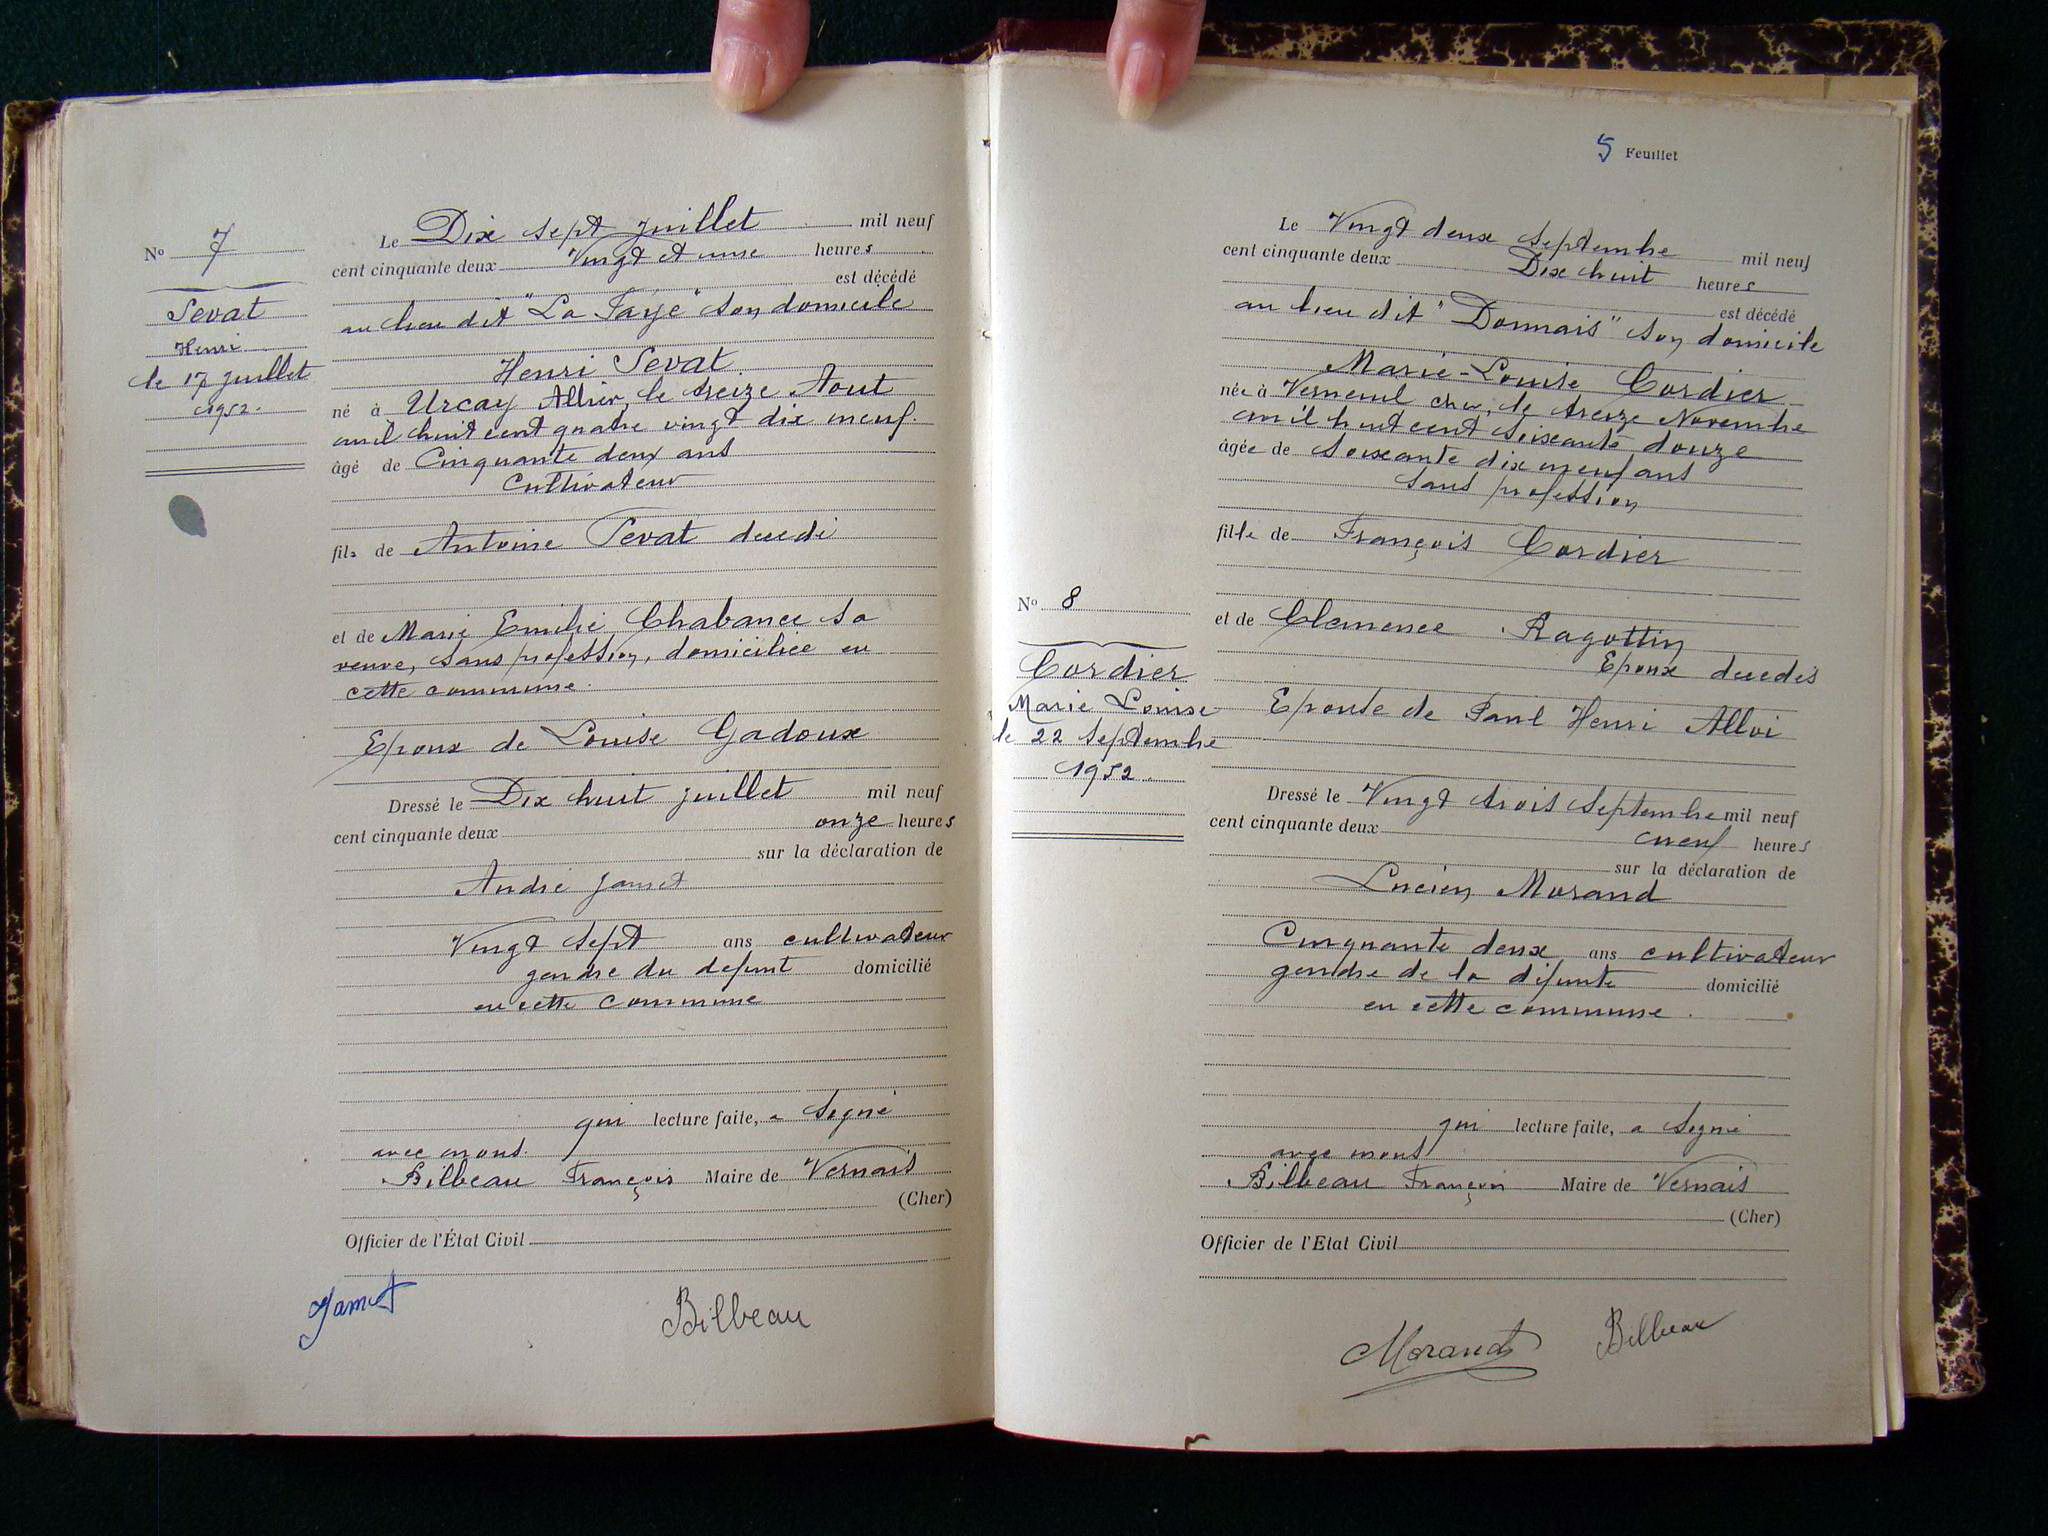 No 7
Sevat
Henri
le 17 juillet
1952.
Le Dix sept juillet mil neuf
cent cinquante deux Vingt et une heures
est décédé
au lieu dit "La Faye" son domicile
Henri Sevat
né à Urçay Allier, le treize Aout
mil huit cent quatre vingt dix neuf.
âgé de Cinquante deux ans
Cultivateur
fils de Antoine Sevat decedé
et de Marie Emilie Chabance sa
veuve, sans profession, domiciliée en
cette commune.
Epoux de Louise Gadoux
Dressé le Dix huit juillet mil neuf
cent cinquante deux onze heures
sur la déclaration de
André Jamet
Vingt sept ans cultivateur
gendre du defunt domicilié
en cette commune
qui lecture faite, a Signé
avec nous.
Bilbeau François Maire de Vernais
(Cher)
Officier de l'État Civil
Jamet Bilbeau
5 Feuillet
No 8
Cordier
Marie Louise
le 22 Septembre
1952.
Le Vingt deux Septembre mil neuf
cent cinquante deux Dix huit heures
est décédé
au lieu dit "Donnais" son domicile
Marie-Louise Cordier
née à Verneuil cher, le treize Novembre
mil huit cent soixante douze
âgée de soixante dix neuf ans
sans profession
fille de François Cordier
et de Clemence Ragottin
Epoux decedés
Epouse de Paul Henri Alloi
Dressé le Vingt trois Septembre mil neuf
cent cinquante deux neuf heures
sur la déclaration de
Lucien Morand
Cinquante deux ans cultivateur
gendre de la défunte domicilié
en cette commune.
qui lecture faite, a Signé
avec nous
Bilbeau François Maire de Vernais
(Cher)
Officier de l'Etat Civil
Morand Bilbeau